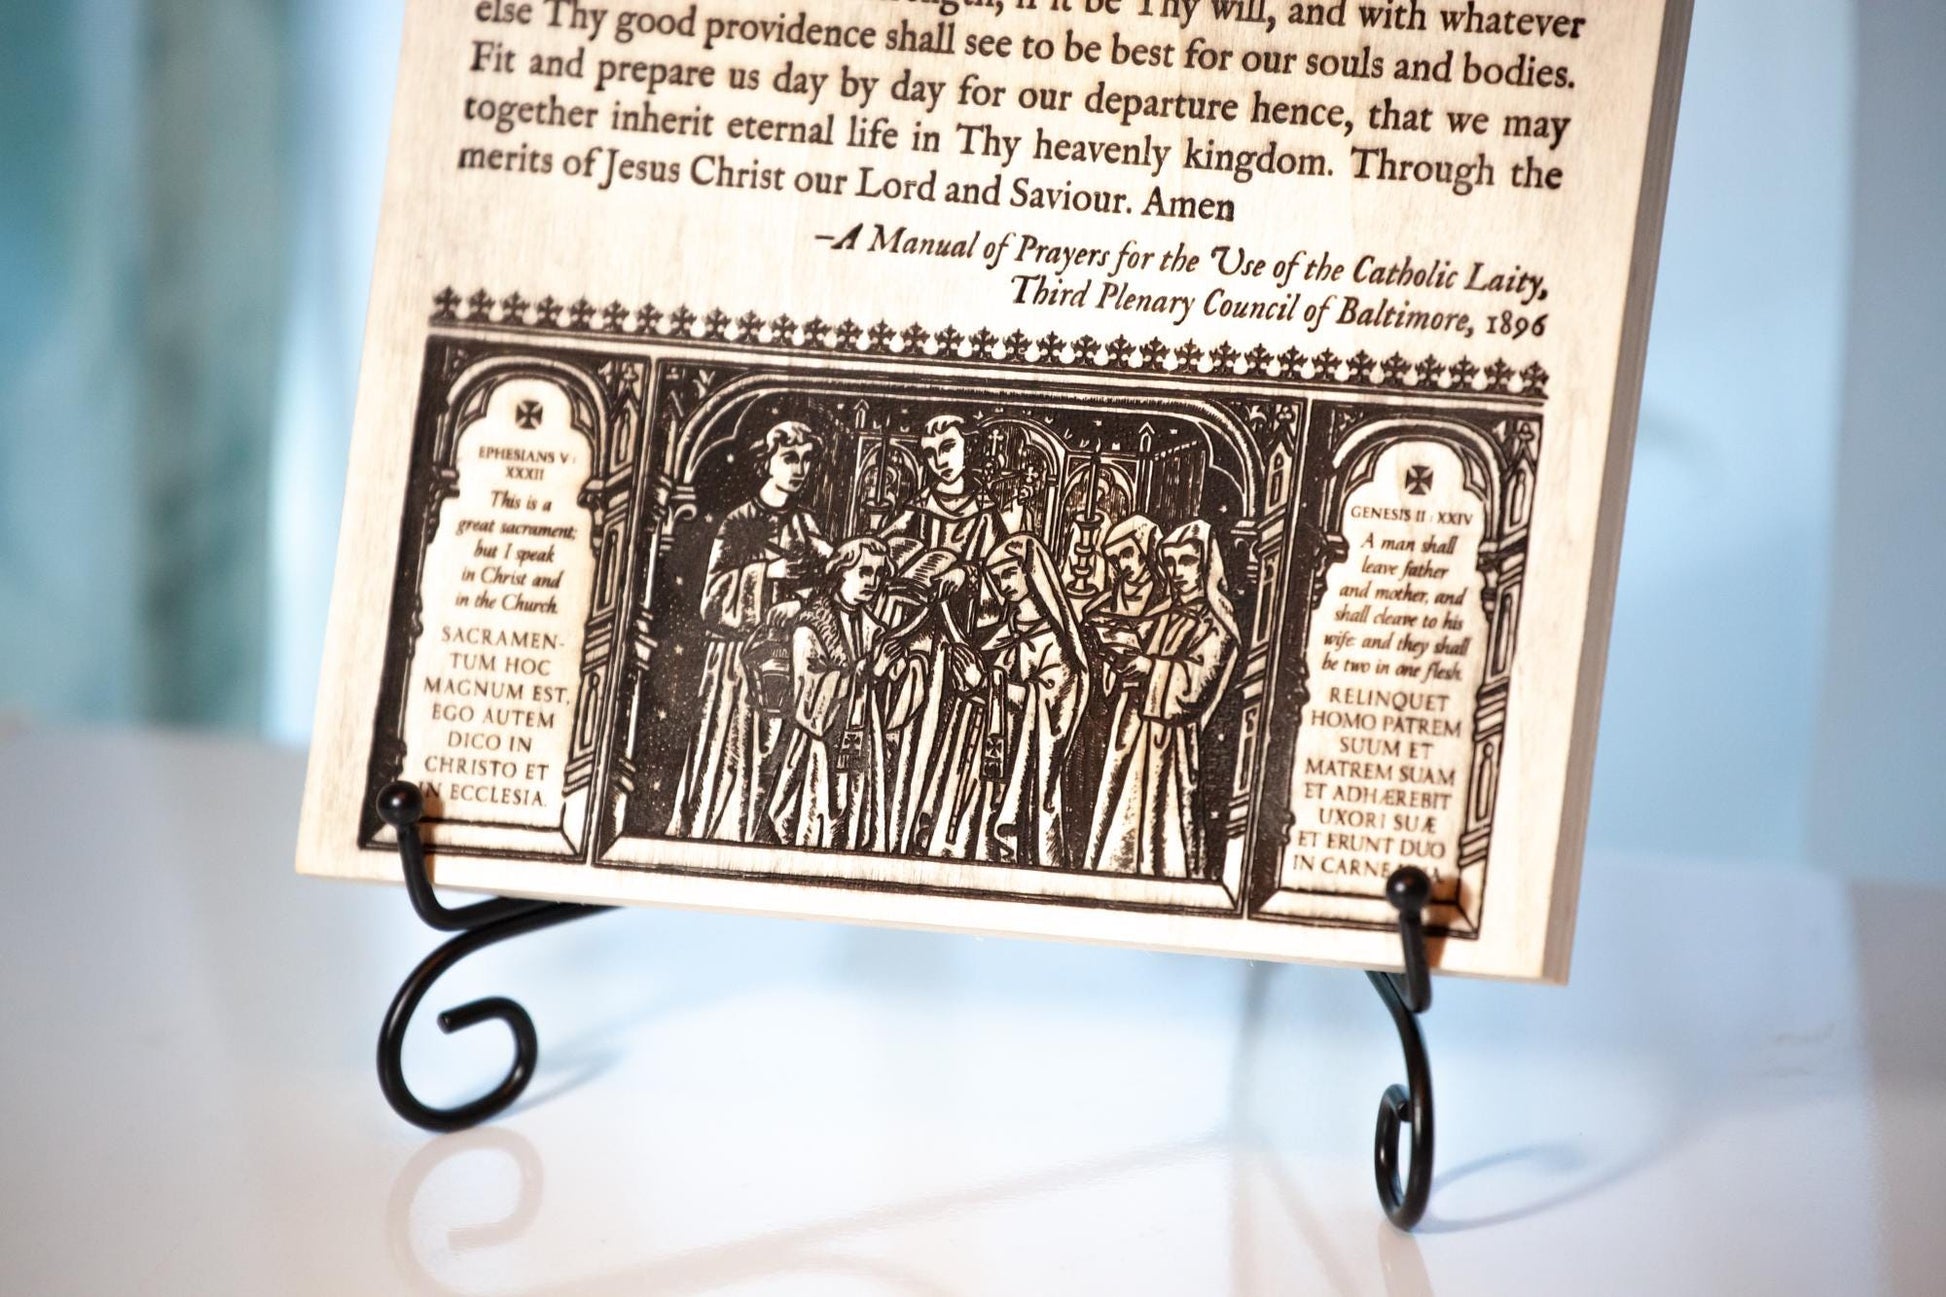 if it be Thy will, and with whatever
else Thy good providence shall see to be best for our souls and bodies.
Fit and prepare us day by day for our departure hence, that we may
together inherit eternal life in Thy heavenly kingdom. Through the
merits of Jesus Christ our Lord and Saviour. Amen
–A Manual of Prayers for the Use of the Catholic Laity,
Third Plenary Council of Baltimore, 1896
EPHESIANS V :
XXXII
This is a
great sacrament;
but I speak
in Christ and
in the Church.
SACRAMEN-
TUM HOC
MAGNUM EST,
EGO AUTEM
DICO IN
CHRISTO ET
IN ECCLESIA.
GENESIS II : XXIV
A man shall
leave father
and mother, and
shall cleave to his
wife: and they shall
be two in one flesh.
RELINQUET
HOMO PATREM
SUUM ET
MATREM SUAM
ET ADHÆREBIT
UXORI SUÆ
ET ERUNT DUO
IN CARNE